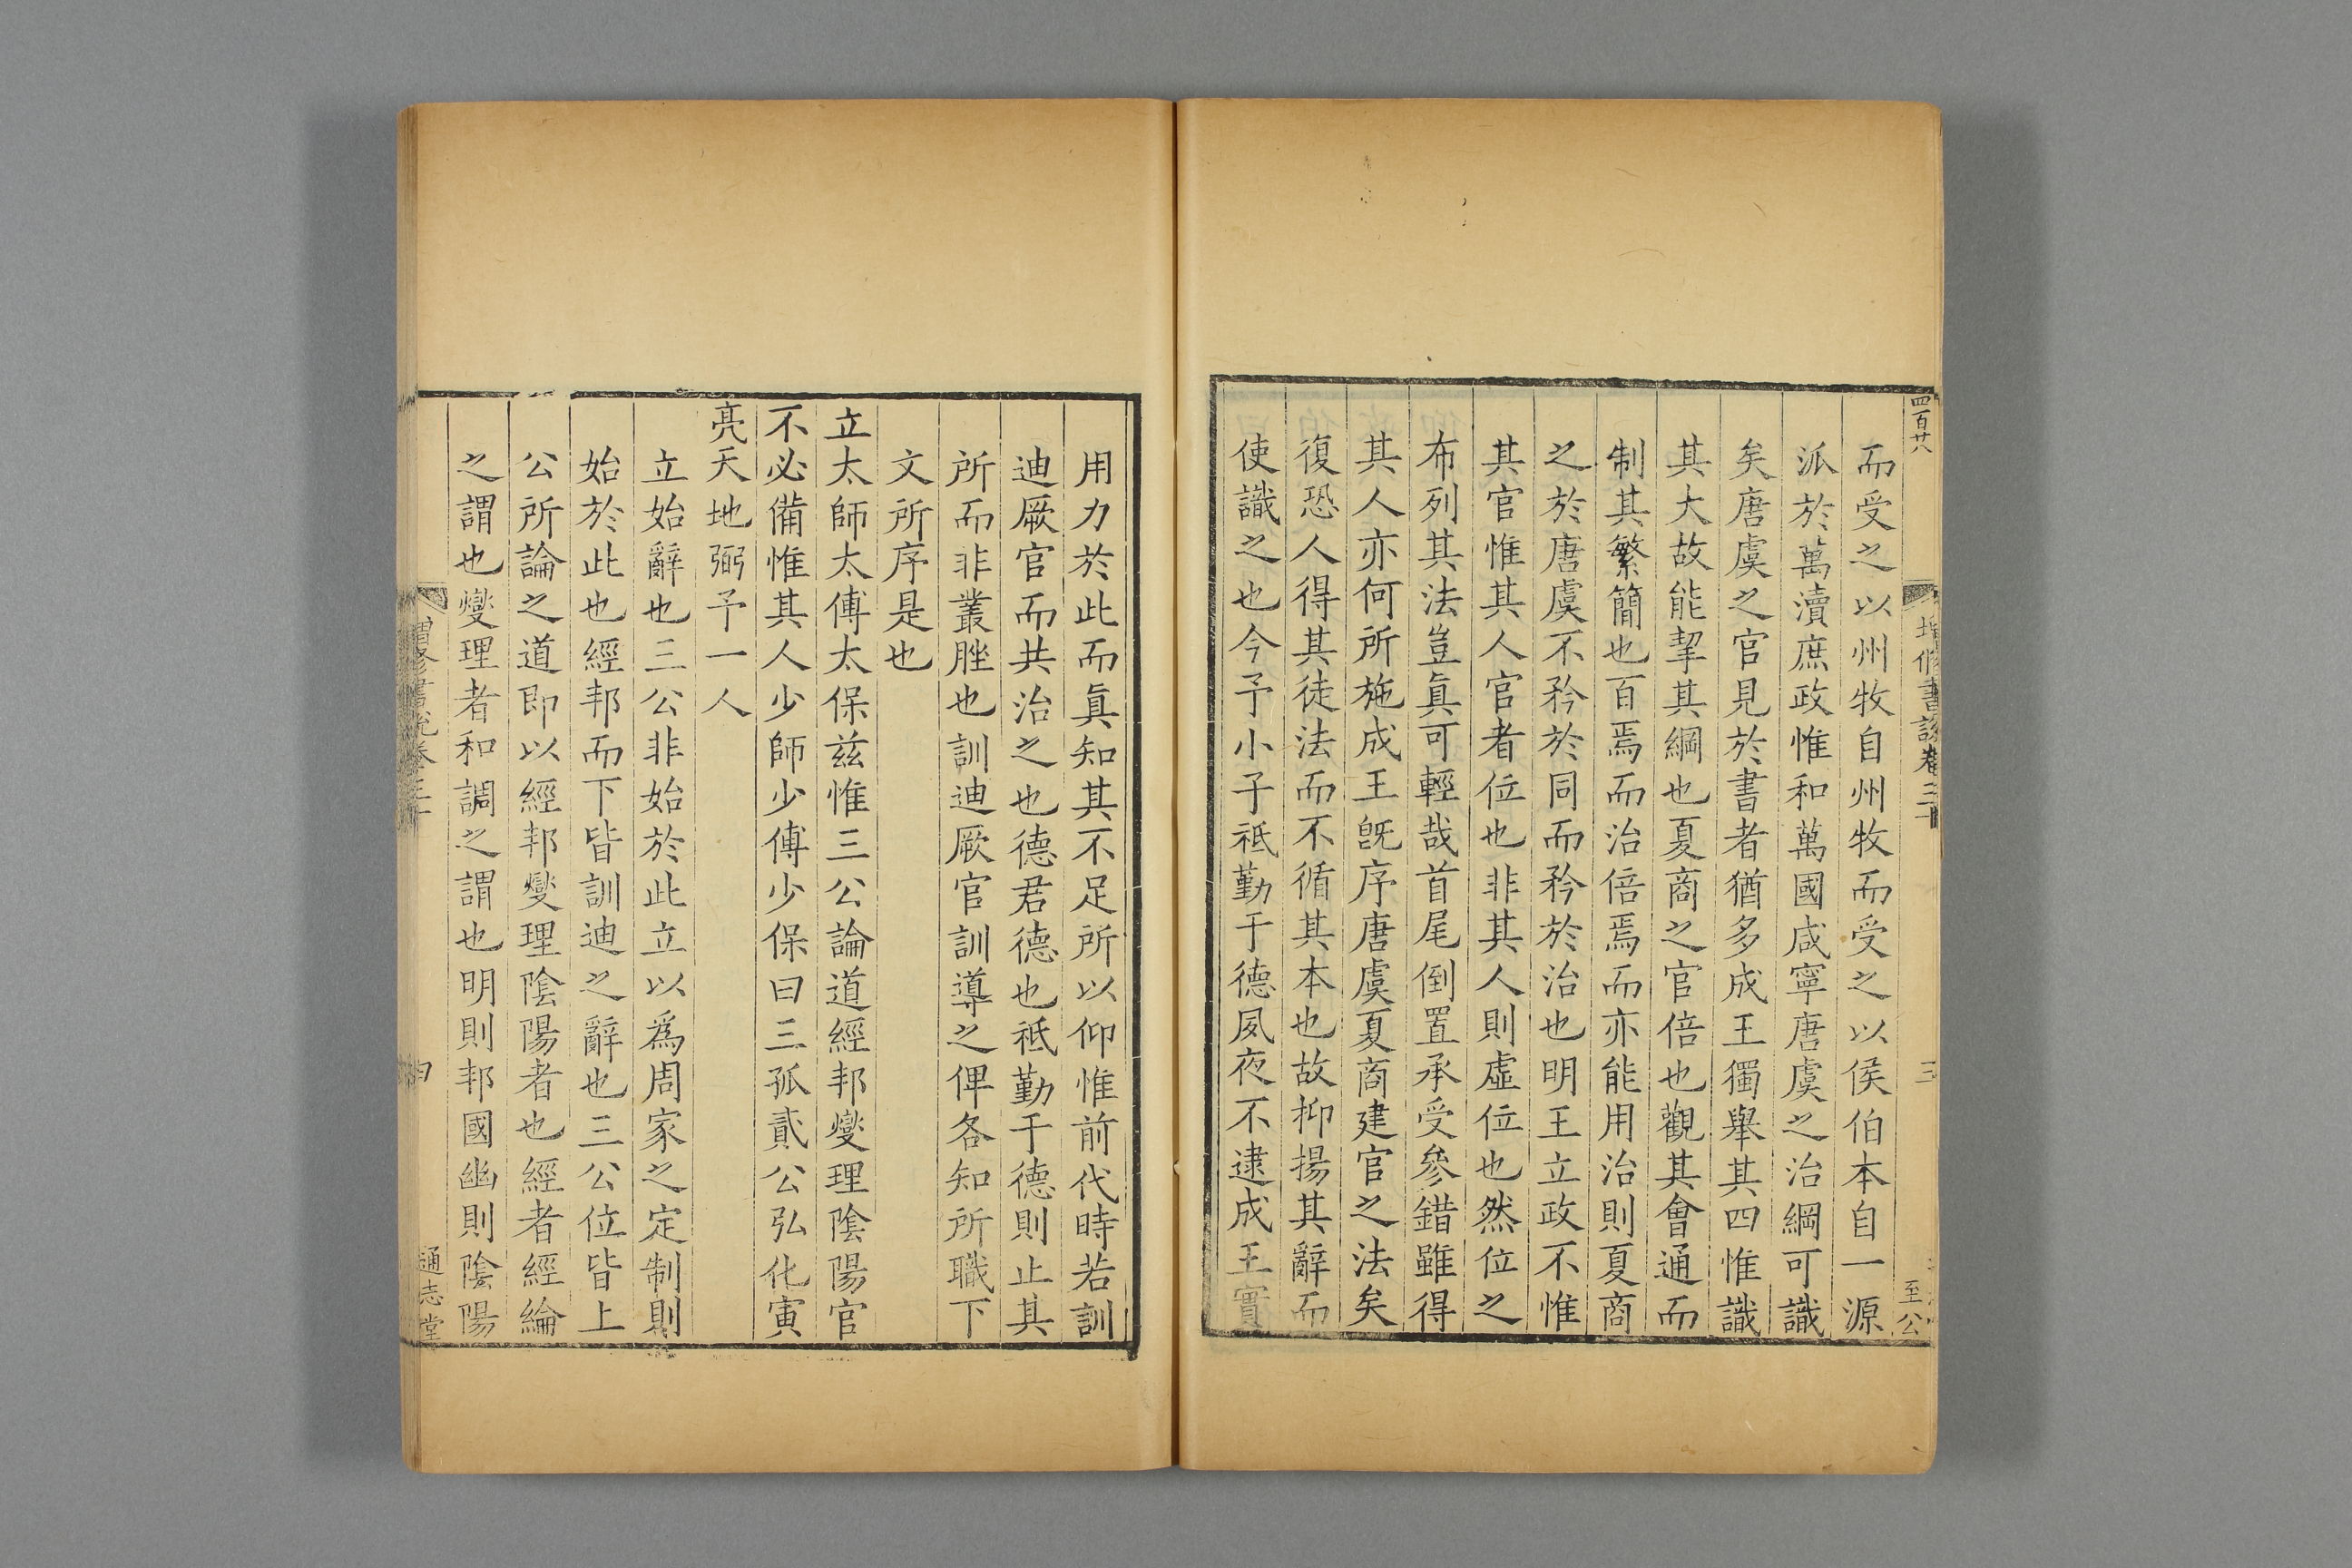 四百廿八
增修書說卷三十
三
至公
而受之以州牧自州牧而受之以侯伯本自一源
派於萬瀆庶政惟和萬國咸寧唐虞之治綱可識
矣唐虞之官見於書者猶多成王獨舉其四惟識
其大故能挈其綱也夏商之官倍也觀其會通而
制其繁簡也百焉而治倍焉而亦能用治則夏商
之於唐虞不矜於同而矜於治也明王立政不惟
其官惟其人官者位也非其人則虛位也然位之
布列其法豈真可輕哉首尾倒置承受參錯雖得
其人亦何所施成王旣序唐虞夏商建官之法矣
復恐人得其徒法而不循其本也故抑揚其辭而
使識之也今予小子祗勤于德夙夜不逮成王實
用力於此而眞知其不足所以仰惟前代時若訓
迪厥官而共治之也德君德也祗勤于德則止其
所而非叢脞也訓迪厥官訓導之俾各知所職下
文所序是也
立太師太傅太保茲惟三公論道經邦燮理隂陽官
不必備惟其人少師少傅少保曰三孤貳公弘化寅
亮天地弼予一人
立始辭也三公非始於此立以爲周家之定制則
始於此也經邦而下皆訓迪之辭也三公位皆上
公所論之道即以經邦燮理隂陽者也經者經綸
之謂也燮理者和調之謂也明則邦國幽則隂陽
增修書說卷三十
四
通志堂